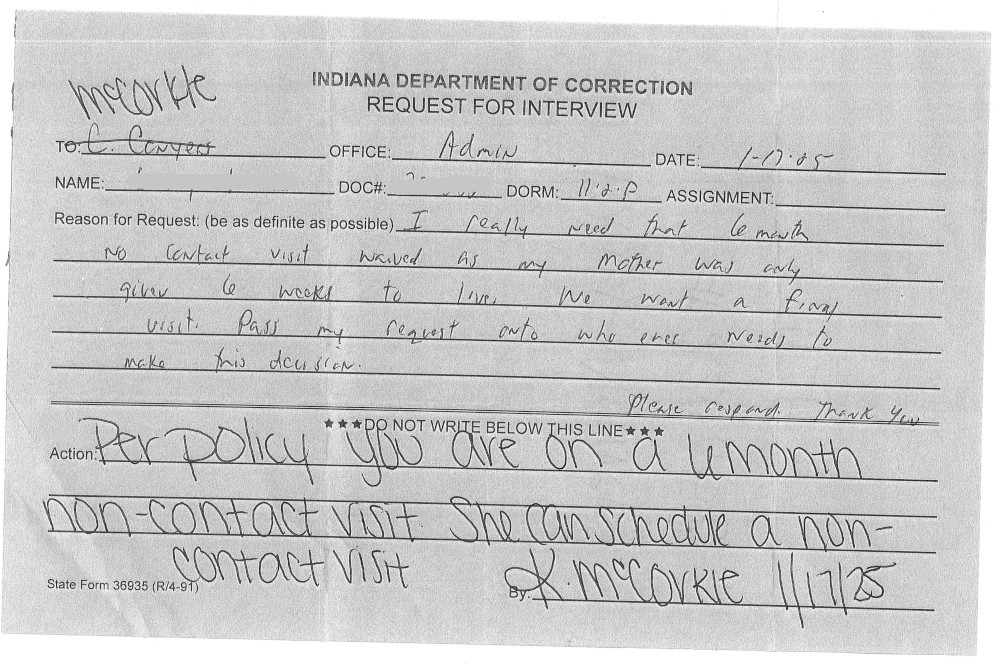 INDIANA DEPARTMENT OF CORRECTION
REQUEST FOR INTERVIEW
McCorkle
TO: C. Conyers OFFICE: Admin DATE: 1-17-25
NAME: DOC#: DORM: 11-2-P ASSIGNMENT:
Reason for Request: (be as definite as possible) I really need that 6 month
No Contact visit waived as my Mother was only
given 6 weeks to live. We want a final
visit. Pass my request onto who ever needs to
make this decision.
Please respond. Thank you
★★★DO NOT WRITE BELOW THIS LINE★★★
Action: Per policy you are on a 6 month
non-contact visit. She can schedule a non-
contact visit
State Form 36935 (R/4-91) By: K. McCorkle 1/17/25